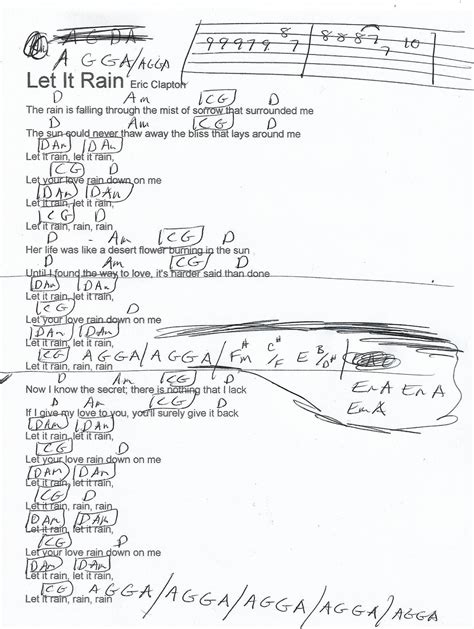 A G D A
A G G A / A G G A
9 9 9 7 9 8 7 | 8 8 8 7 7 10
Let It Rain Eric Clapton
D Am CG D
The rain is falling through the mist of sorrow that surrounded me
D Am CG D
The sun could never thaw away the bliss that lays around me
DAm DAm
Let it rain, let it rain,
CG D
Let your love rain down on me
DAm DAm
Let it rain, let it rain,
CG D
Let it rain, rain, rain
D - Am CG D
Her life was like a desert flower burning in the sun
D Am CG D
Until I found the way to love, it's harder said than done
DAm DAm
Let it rain, let it rain,
CG D
Let your love rain down on me
DAm DAm
Let it rain, let it rain,
CG AGGA/AGGA/ F#m C#/F E B/D#
Let it rain, rain, rain
EmA EmA
EmA
D Am CG D
Now I know the secret; there is nothing that I lack
D Am CG D
If I give my love to you, you'll surely give it back
DAm DAm
Let it rain, let it rain,
CG D
Let your love rain down on me
DAm DAm
Let it rain, let it rain,
CG D
Let it rain, rain, rain
DAm DAm
Let it rain, let it rain,
CG D
Let your love rain down on me
DAm DAm
Let it rain, let it rain,
CG AGGA/AGGA/AGGA/AGGA/AGGA
Let it rain, rain, rain